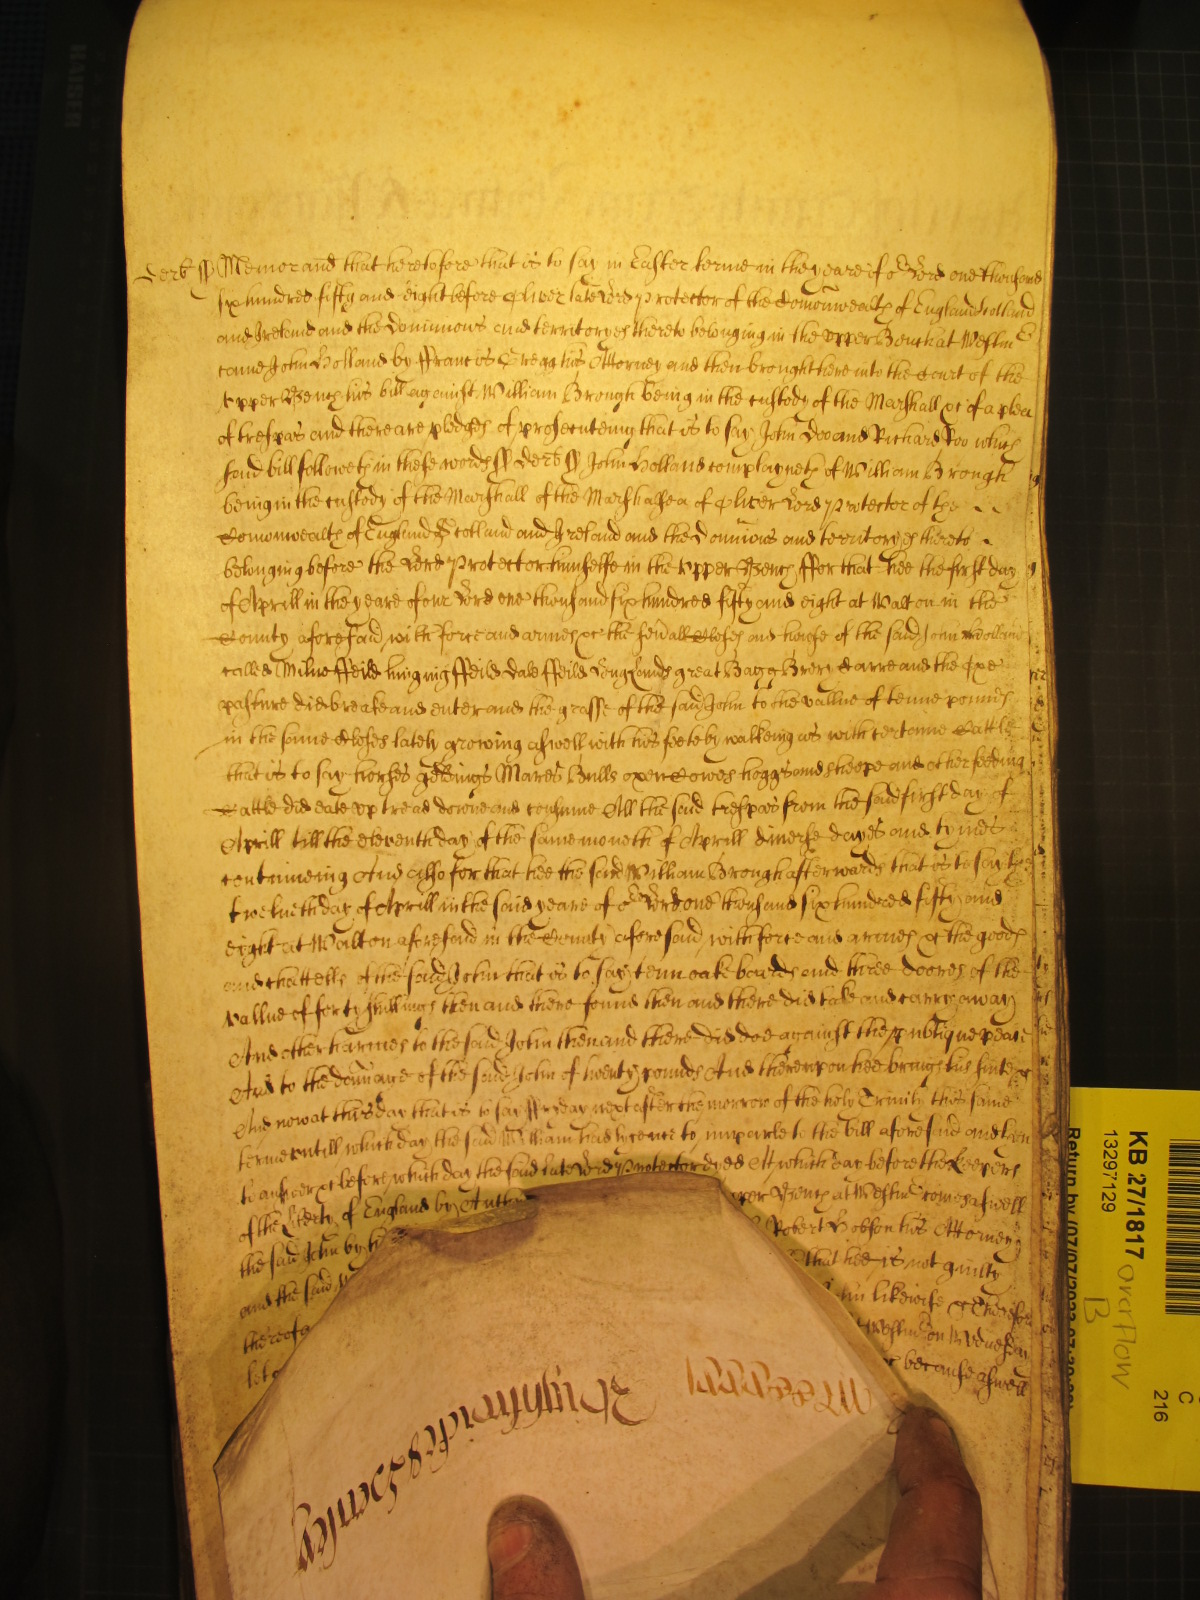 Derb ss Memorand that heretofore that is to say in Easter terme in the yeare of or Lord one thousand
six hundred fifty and eight before Oliver late Lord Protector of the Comonwealth of England Scotland
and Ireland and the Dominions and territoryes thereto belonging in the upper Bench at Westm
came John Holland by ffrancis Gregg his Attorney and then brought here into the Court of the
upper Bench his bill against William Brough being in the custody of the Marshall &c of a plea
of trespas and there are pledges of prosecuteing that is to say John Doo and Richard Roo which
said bill followeth in these words ss Derb ss John Holland complayneth of William Brough
being in the custody of the Marshall of the Marshalsea of Oliver Lord Protector of the
Comonwealth of England Scotland and Ireland and the Dominions and territoryes thereto
belonging before the Lord Protector himselfe in the upper Bench ffor that hee the first day
of Aprill in the yeare of our Lord one thousand six hundred fifty and eight at Walton in the
County aforesaid with force and armes &c the severall Closes and house of the said John Holland
called Milne ffeild ffeild Dale ffeild Long Lands great Bagg Brery Carre and the Oxe
pasture did breake and enter and the grasse of the said John to the vallue of tenne pounds
in the same Closes lately growing aswell with his feete by walkeing as with certaine Cattle
that is to say horses geldings Mares Bulls oxen Cowes hoggs and sheepe and other feeding
Cattle did eate up tread downe and consume All the said trespas from the said first day of
Aprill till the eleventh day of the same moneth of Aprill diverse dayes and tymes
continueing And also for that hee the said William Brough afterwards that is to say the
twelueth day of Aprill in the said yeare of or Lord one thousand six hundred fifty and
eight at Walton aforesaid in the County aforesaid with force and armes &c the goods
and chattells of the said John that is to say tenn oake boards and three doores of the
vallue of forty shillings then and there found then and there did take and carry away
And other harmes to the said John then and there did doe against the publique peace
And to the damage of the said John of twenty pounds And thereupon hee brings his suite &c
And now at this day that is to say ffryday next after the morrow of the holy Trinity this same
terme untill which day the said William had lycence to imparle to the bill aforesaid and then
to answer &c before which day the said late Lord Protector dyed At which day before the Keepers
of the Liberty of England by Autho upper Bench at Westm comes aswell
the said John by h Robert Hobson his Attorney
and the said W that hee is not guilty
thereof likewise &c Therefore
let Westm on Wednesday
because aswell
KB 27/1817
13297129
overflow
B
C
216